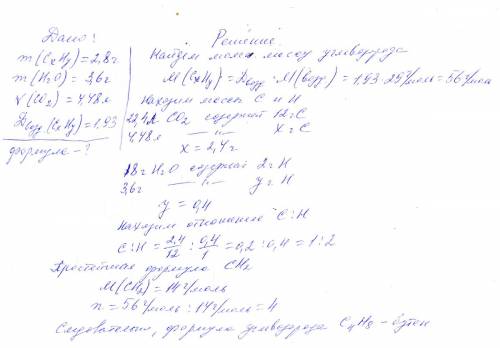 Дано:
m(CxHy)=2,8г
m(H2O)=3,6г
V(CO2)=4,48л
Dвозд.(CxHy)=1,93
формула-?
Решение
Найдем молек массу углеводорода
M(CxHy)=Dвозд·M(возд)=1,93·29г/моль=56г/моль
Находим массы C и H
22,4л CO2 содержит 12гC
4,48л —"— xгC
x=2,4г
18г H2O содержит 2г H
3,6г —"— yг H
y=0,4
Находим отношение C:H
C:H=2,4/12:0,4/1=0,2:0,4=1:2
Простейшая формула CH2
M(CH2)=14г/моль
n=56г/моль:14г/моль=4
Следовательно, формула углеводорода C4H8-бутен